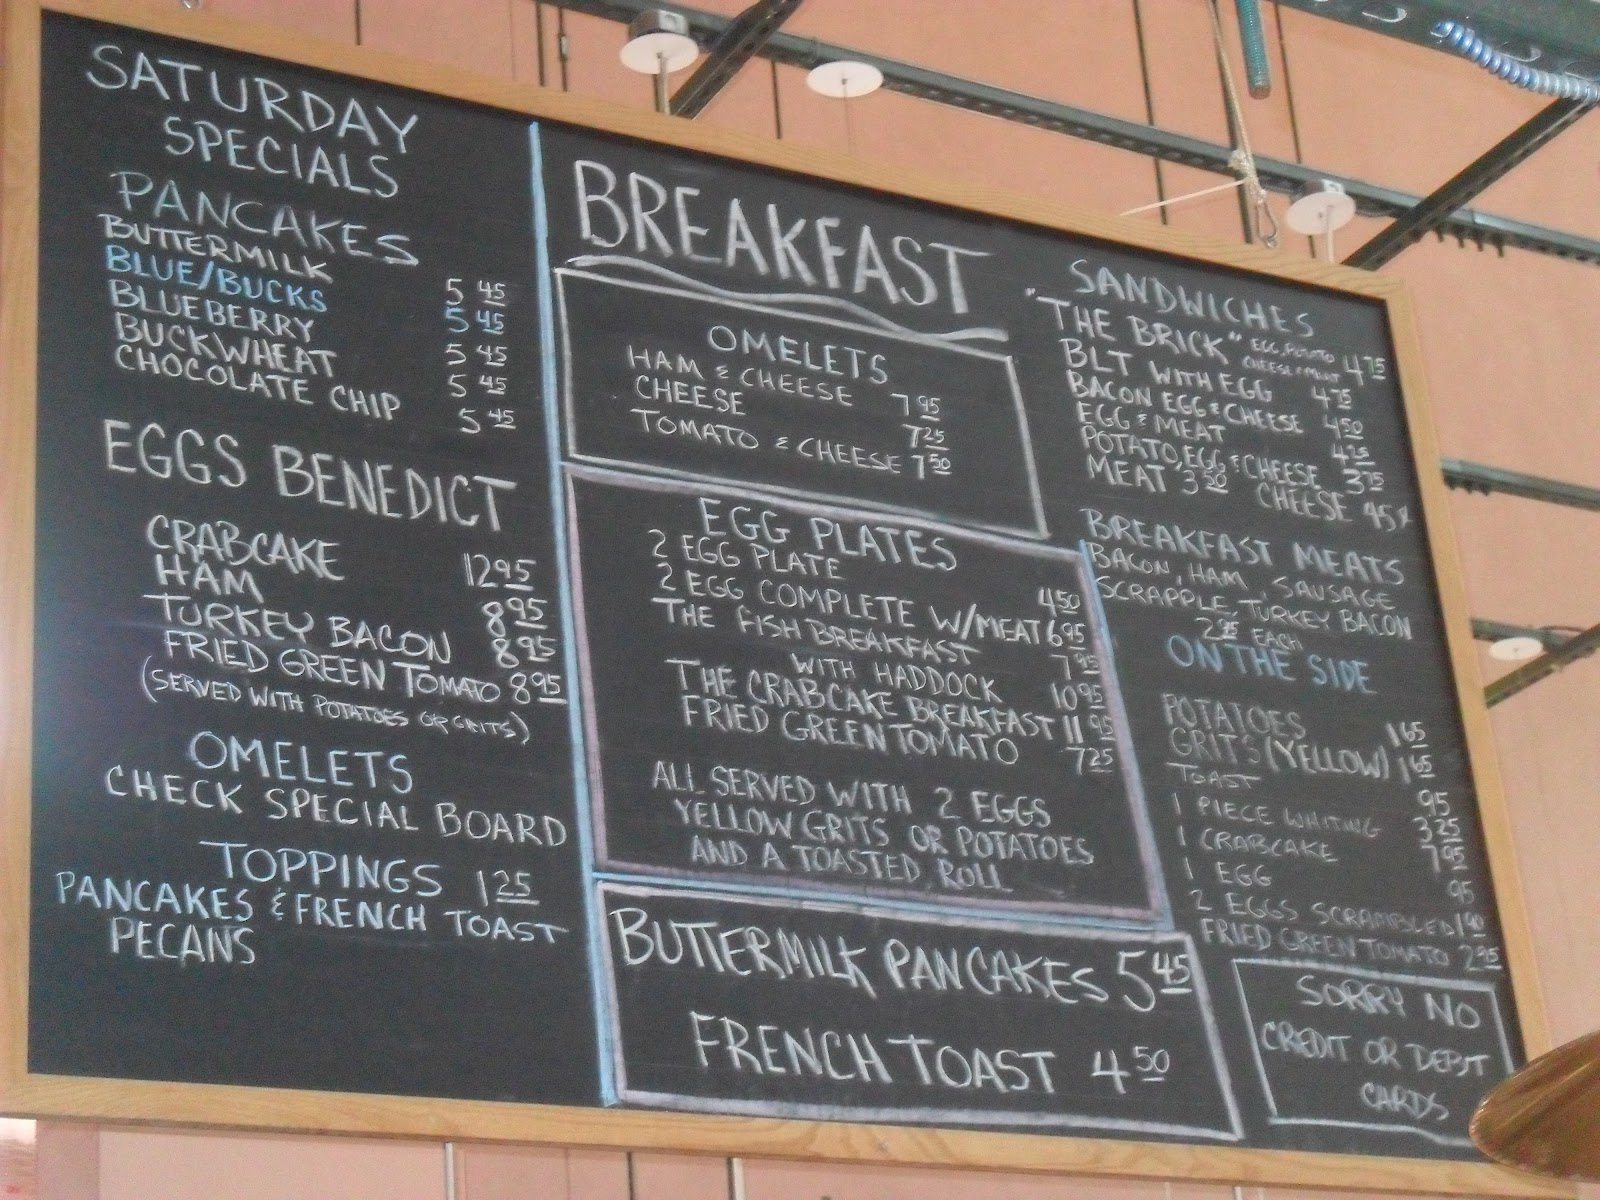 SATURDAY
SPECIALS
PANCAKES
BUTTERMILK 5 45
BLUE/BUCKS 5 45
BLUEBERRY 5 45
BUCKWHEAT 5 45
CHOCOLATE CHIP 5 45
EGGS BENEDICT
CRABCAKE 12 95
HAM 8 95
TURKEY BACON 8 95
FRIED GREEN TOMATO 8 95
(SERVED WITH POTATOES OR GRITS)
OMELETS
CHECK SPECIAL BOARD
TOPPINGS 1 25
PANCAKES & FRENCH TOAST
PECANS
BREAKFAST
OMELETS
HAM & CHEESE 7 95
CHEESE 7 25
TOMATO & CHEESE 7 50
EGG PLATES
2 EGG PLATE 4 50
2 EGG COMPLETE W/MEAT 6 95
THE FISH BREAKFAST 7 95
WITH HADDOCK 10 95
THE CRABCAKE BREAKFAST 11 95
FRIED GREEN TOMATO 7 25
ALL SERVED WITH 2 EGGS
YELLOW GRITS OR POTATOES
AND A TOASTED ROLL
BUTTERMILK PANCAKES 5 45
FRENCH TOAST 4 50
SANDWICHES
"THE BRICK" EGG, POTATO
CHEESE & MEAT 4 75
BLT WITH EGG 4 75
BACON EGG & CHEESE 4 50
EGG & MEAT 4 25
POTATO, EGG & CHEESE 3 75
MEAT 3 50 CHEESE 45¢
BREAKFAST MEATS
BACON, HAM, SAUSAGE
SCRAPPLE, TURKEY BACON
2 95 EACH
ON THE SIDE
POTATOES 1 65
GRITS (YELLOW) 1 65
TOAST 95
1 PIECE WHITING 3 25
1 CRABCAKE 7 95
1 EGG 95
2 EGGS SCRAMBLED 1 90
FRIED GREEN TOMATO 2 95
SORRY NO
CREDIT OR DEBIT
CARDS